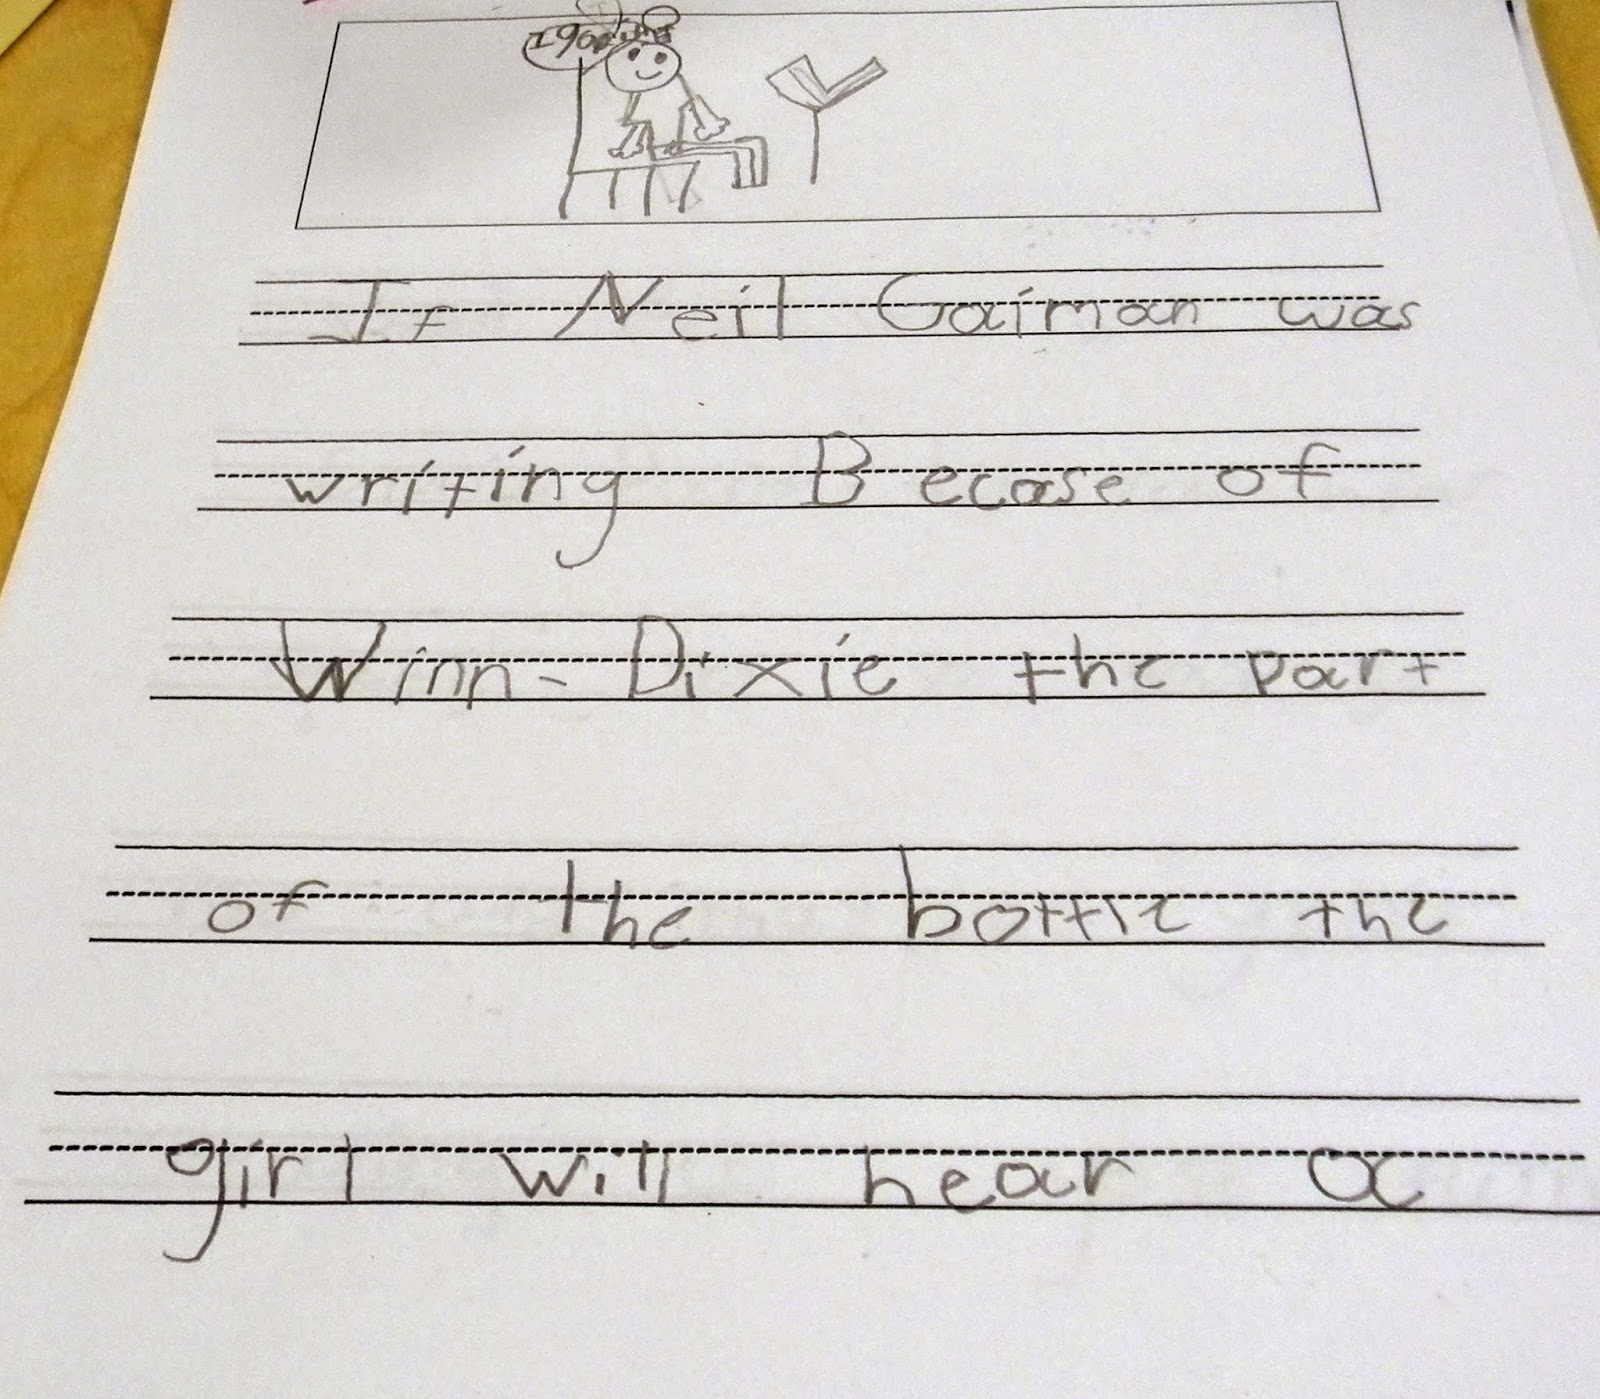 If Neil Gaiman was
writing Becase of
Winn-Dixie the part
of the bottle the
girl will hear a